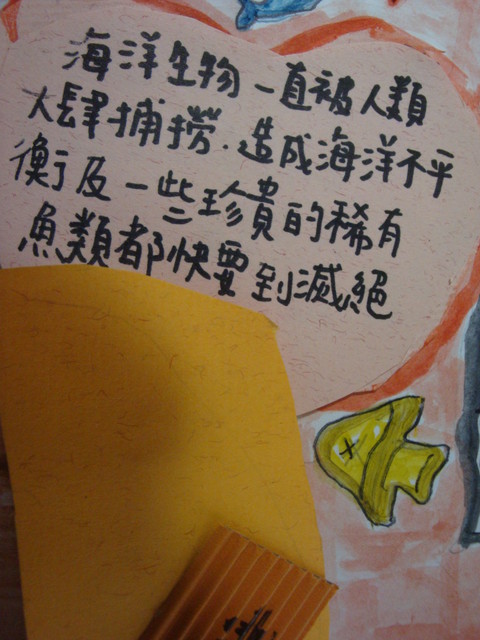 海洋生物一直被人類
大肆捕撈.造成海洋不平
衡及一些珍貴的稀有
魚類都快要到滅絕